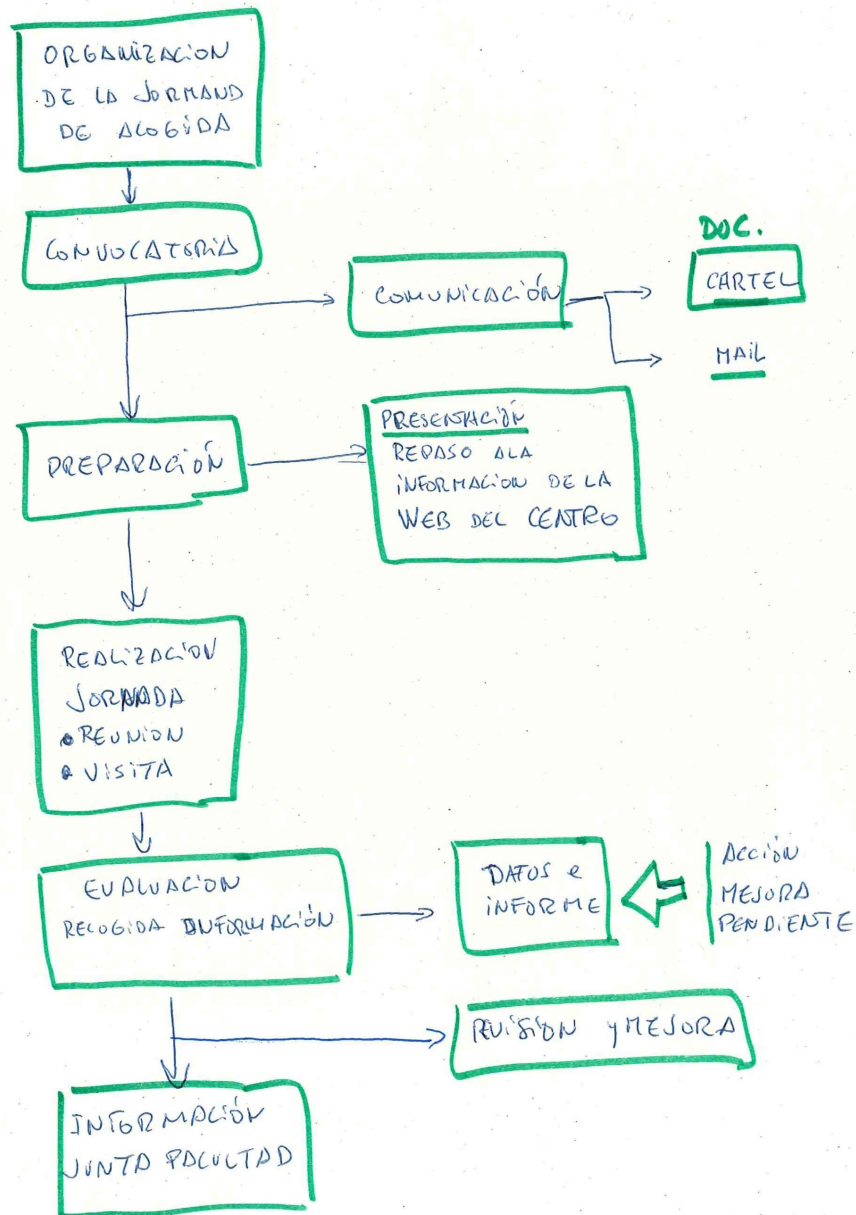 ORGANIZACION
DE LA JORNADA
DE ACOGIDA
CONVOCATORIA
COMUNICACIÓN
DOC.
CARTEL
MAIL
PREPARACIÓN
PRESENTACIÓN
REPASO A LA
INFORMACION DE LA
WEB DEL CENTRO
REALIZACIÓN
JORNADA
• REUNION
• VISITA
EVALUACION
RECOGIDA INFORMACIÓN
DATOS e
INFORME
ACCIÓN
MEJORA
PENDIENTE
REVISIÓN y MEJORA
INFORMACIÓN
JUNTA FACULTAD